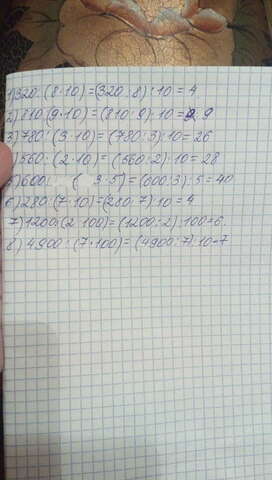 1) 320 : (8·10) = (320 : 8) : 10 = 4
2) 810 (9·10) = (810 : 9) : 10 = 9
3) 780 : (3·10) = (780 : 3) : 10 = 26
4) 560 : (2·10) = (560 : 2) : 10 = 28
5) 600 : (3·5) = (600 : 3) : 5 = 40
6) 280 : (7·10) = (280 : 7) : 10 = 4
7) 1200 : (2·100) = (1200 : 2) : 100 = 6
8) 4900 : (7·100) = (4900 : 7) : 10 = 7